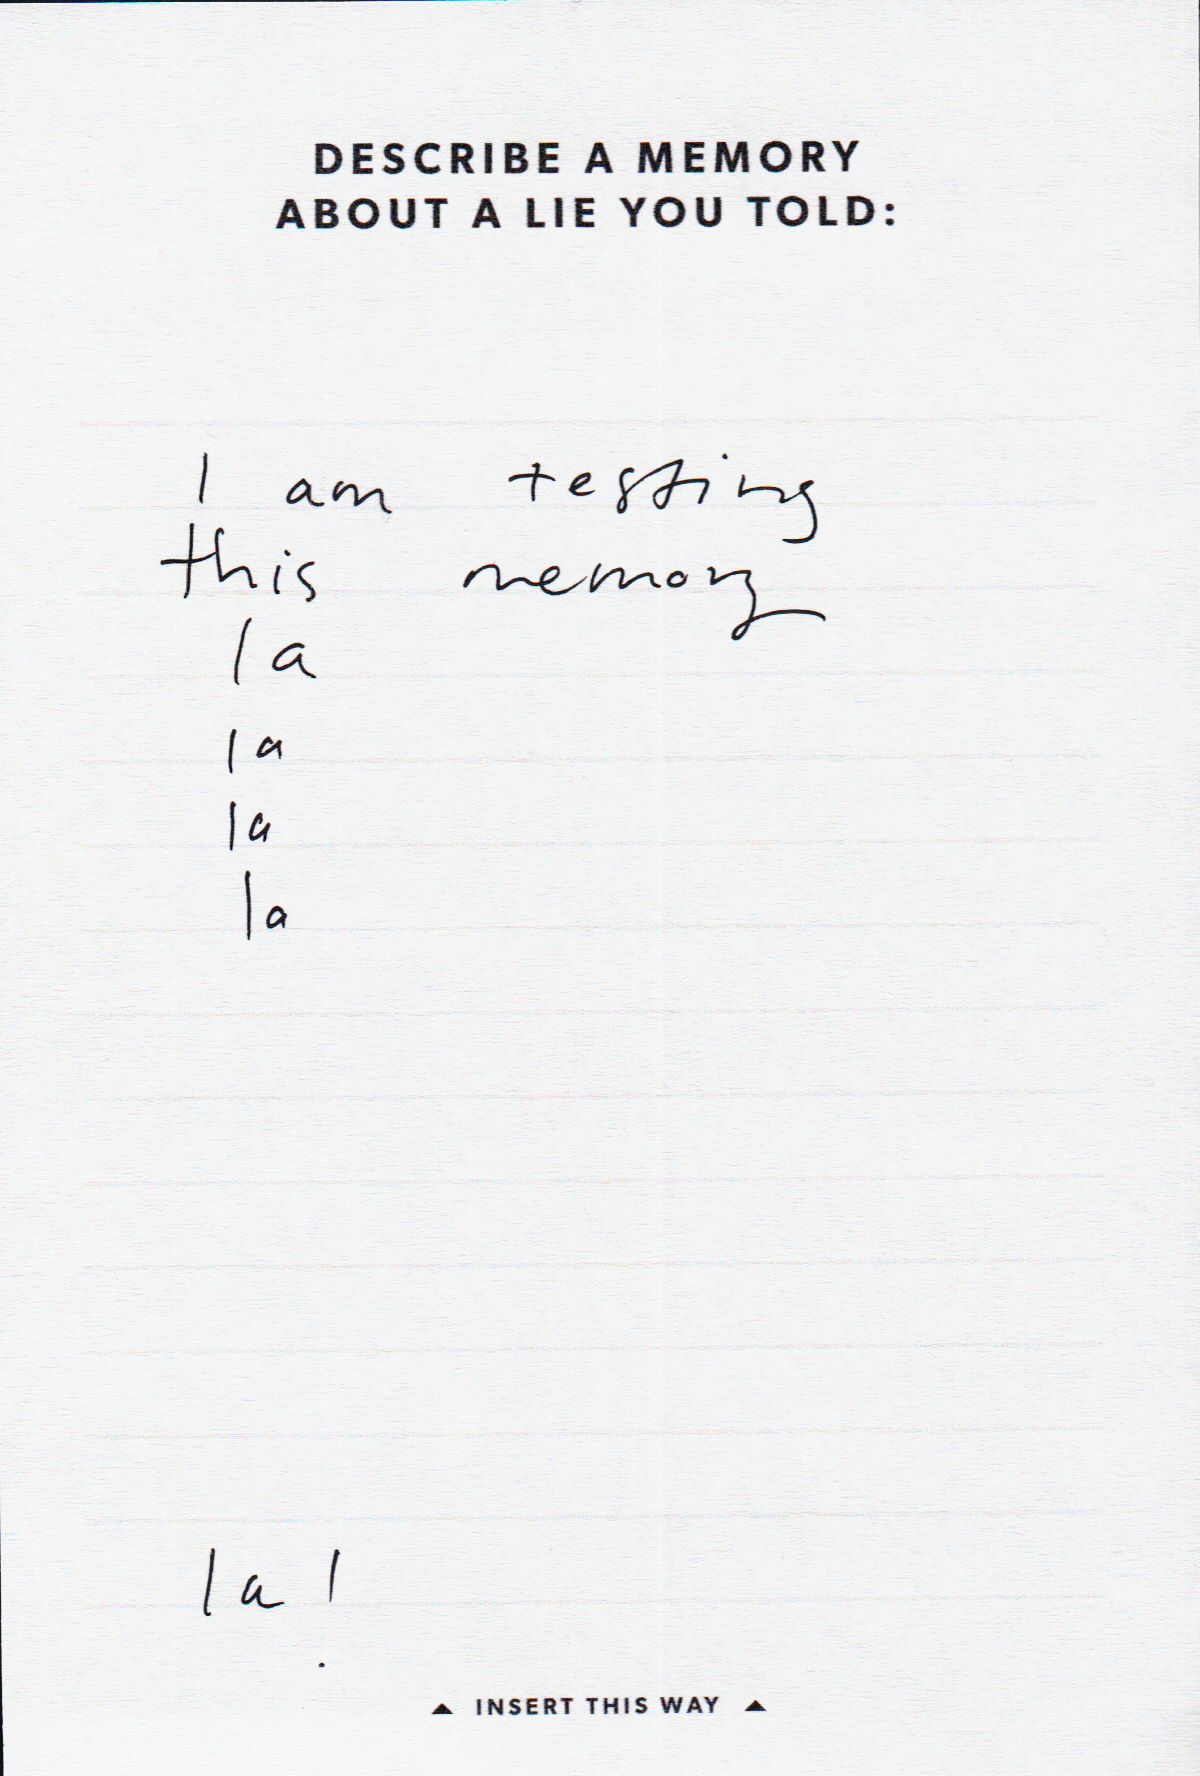 DESCRIBE A MEMORY
ABOUT A LIE YOU TOLD:
I am testing
this memory
la
la
la
la
la!
▲ INSERT THIS WAY ▲